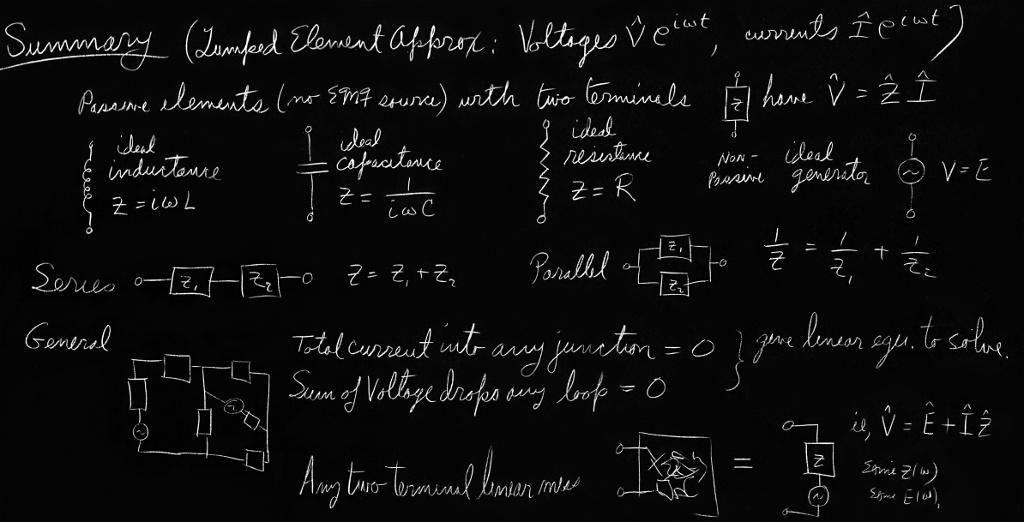 Summary (Lumped Element Approx: Voltages V̂ e^{iωt}, currents Î e^{iωt})
Passive elements (no EMF source) with two terminals Z have V̂ = Ẑ Î
ideal inductance Z = iωL
ideal capacitance Z = 1/(iωC)
ideal resistance Z = R
Non-Passive ideal generator ~ V = E
Series Z₁ Z₂ Z = Z₁ + Z₂
Parallel Z₁ Z₂ 1/Z = 1/Z₁ + 1/Z₂
General
Total current into any junction = 0
Sum of Voltage drops any loop = 0
} give linear equ. to solve.
Any two terminal linear mess = Z ~
ie, V̂ = Ê + Î Ẑ
Some Z(ω)
Some E(ω),